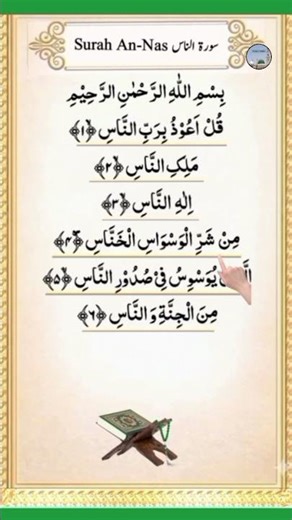 Surah An-Nas سورة الناس
بِسْمِ اللهِ الرَّحْمٰنِ الرَّحِيْمِ
قُلْ اَعُوْذُ بِرَبِّ النَّاسِ ﴿۱﴾
مَلِكِ النَّاسِ ﴿۲﴾
اِلٰهِ النَّاسِ ﴿۳﴾
مِنْ شَرِّ الْوَسْوَاسِ الْخَنَّاسِ ﴿۴﴾
يُوَسْوِسُ فِيْ صُدُوْرِ النَّاسِ ﴿۵﴾
مِنَ الْجِنَّةِ وَ النَّاسِ ﴿۶﴾